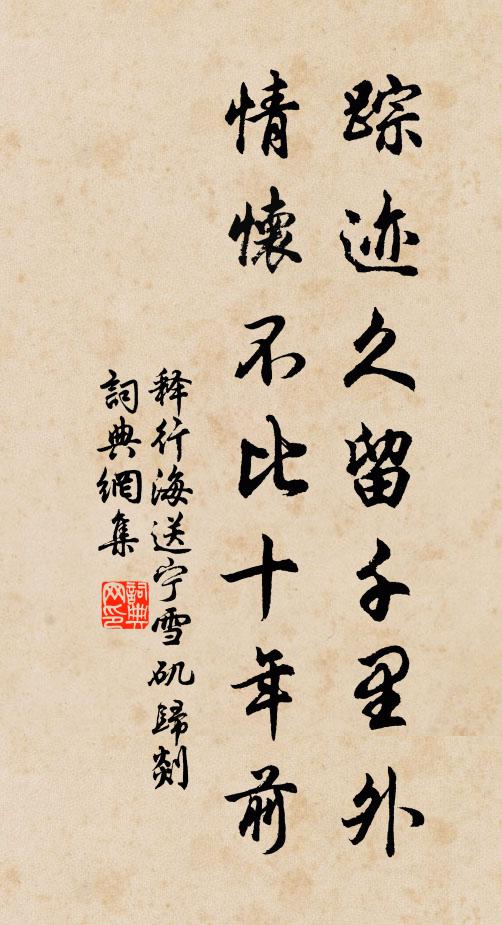 踪迹久留千里外
情懷不比十年前
释行海送宁雪矶歸剡
詞典網集
詞典
网印